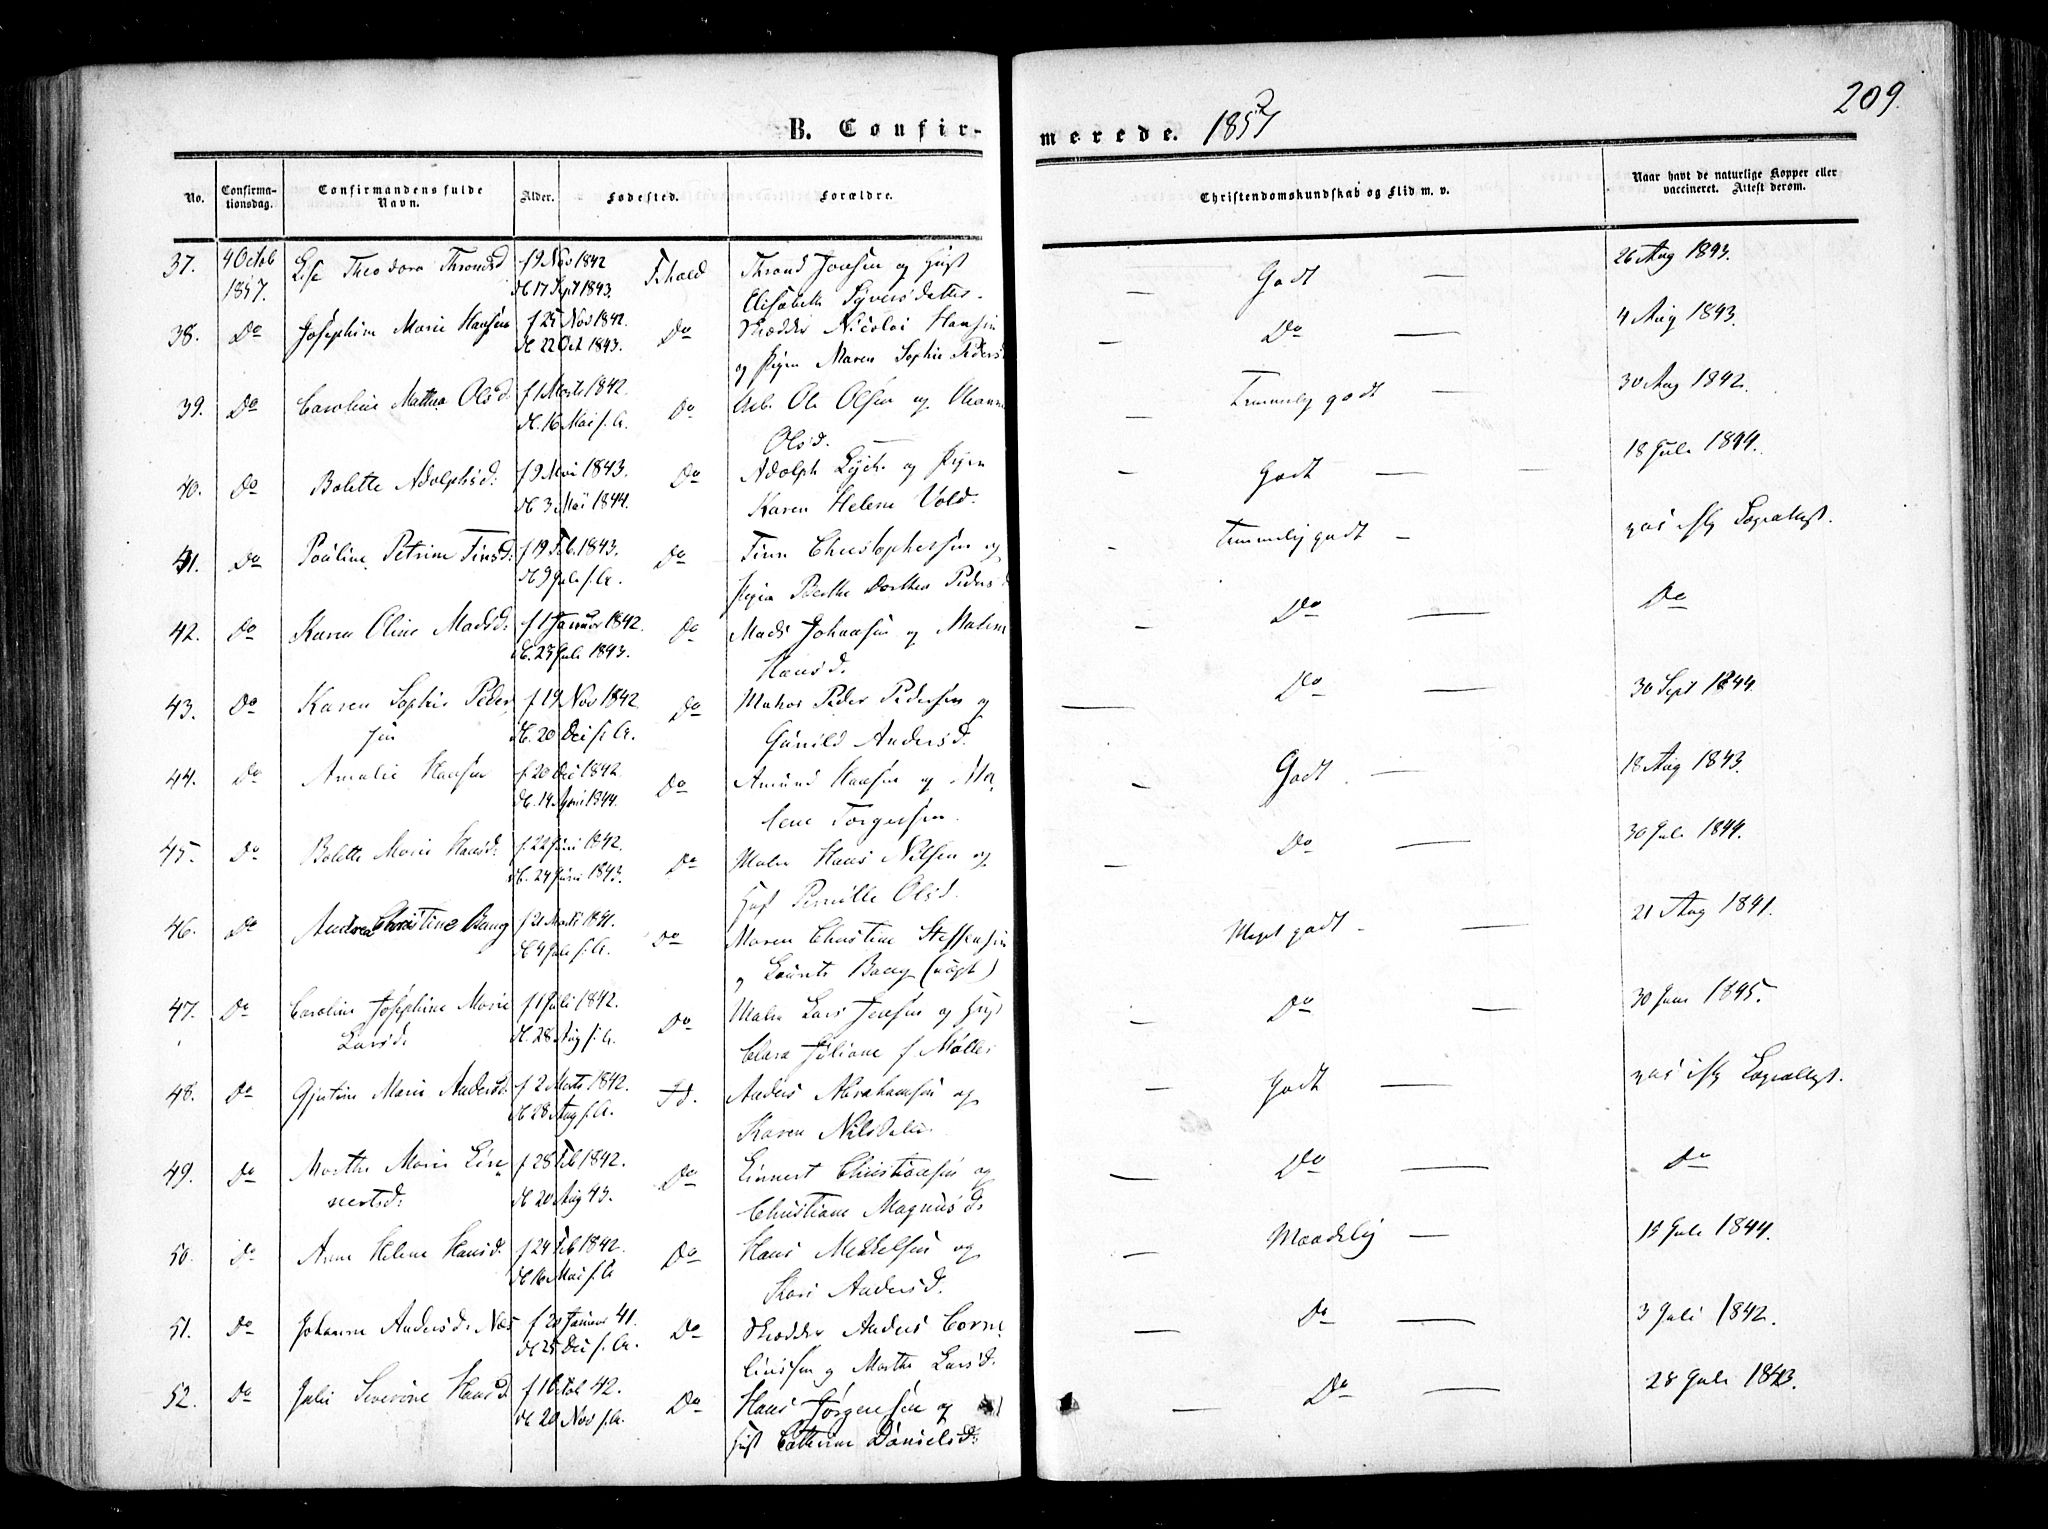 209.
B. Confir-
merede. 1857
No.
Confirma-
tionsdag.
Confirmandens fulde
Navn.
Alder.
Fødested.
Forældre.
Christendomskundskab og Flid m. v.
Naar havt de naturlige Kopper eller
vaccineret. Attest derom.
37. 4 Octob Theodora f 9 Nov 1842 Fr.hald og
1857. d. 17 Sept 1843. Elisabeth Syversdatter.
— Godt — 26 Aug 1843.
38. Do Josephine Marie Hansen f 25 Nov 1842. Do Nicolai Hansen
d. 22 Oct 1843. og Pigen Maren Sophie Peders
— Do — 4 Aug 1843.
39. Do Caroline Mathea Olsd. f 1 Marts 1842 Do Arb. Ole Olsen og Johanne
d. 16 Mai s. A. Olsd.
— Temmelig godt — 30 Aug 1842.
40. Do Bolette Adolphsd: f 9 1843. Do Adolph og Pigen
d. 3 Mai 1844. Karen Helene Vold.
— Godt — — 18 Juli 1844.
41. Do Pauline Petrine Finsd: f 19 Feb. 1843. Do Finn Christophersen og
d. 9 Juli s. A. Pigen Dorthea Peders
— Temmelig godt —
42. Do Karen Oline Madsd: f 1 Januar 1842. Do Mads Johansen og Malene
d. 23 Juli 1843. Hansd.
— Do — Do
43. Do Karen Sophie Peder- f 19 Nov 1842 Do Peder Pedersen og
sen d. 20 Dec s. A. Gunild Andersd.
— Do — 30 Sept 1844.
44. Do Amalie Hansen f. 20 Dec 1842. Do Amund Hansen og Ma-
d. 14 April 1844. lene Torgersen.
— Godt — 18 Aug 1843.
45. Do Bolette Marie Hansd: f. 22 Juni 1842. Do Hans Nilsen og
d. 24 Juni 1843. Pernille Olsd.
— Do — 30 Juli 1844.
46. Do Andrea Christine Bang f 21 Marts 1841. Do Maren Christine Steffensen
d 4 Juli s. A. og Bang
Meget godt — 21 Aug 1841.
47. Do Caroline Josephine Marie f 1 Juli 1842. Do Lars Jensen og
Larsd: d. 28 Aug s. A. Juliane f. Møller
— Do — 30 Juni 1845.
48. Do Marie Andersd: f 2 Marts 1842. Id. Anders Abrahamsen og
d. 28 Aug s. A. Karen Nilsdatter.
— Godt —
49. Do Marthe Marie Lin- f 28 Feb 1842. Do Linnert Christiansen og
nertsd: d. 20 Aug 43. Christiane Magnusd:
— Do — Do
50. Do Anne Helene Hansd. f 24 Feb 1842. Do Hans Mekkelsen og
d. 16 Mai s. A Kari Andersd.
— Maadelig — 15 Juli 1844.
51. Do Johanne Andersd: Næs f 20 Januar 41. Do Anders Corne-
d. 25 Dec s. A. liussen og Marthe Larsd.
— Do — 3 Juli 1842.
52. Do Julie Severine Hansd 42. Do Hans Jørgensen og
d. 20 Nov s. A. Cathrine Danielsd:
— Do — 28 Juli 1843.